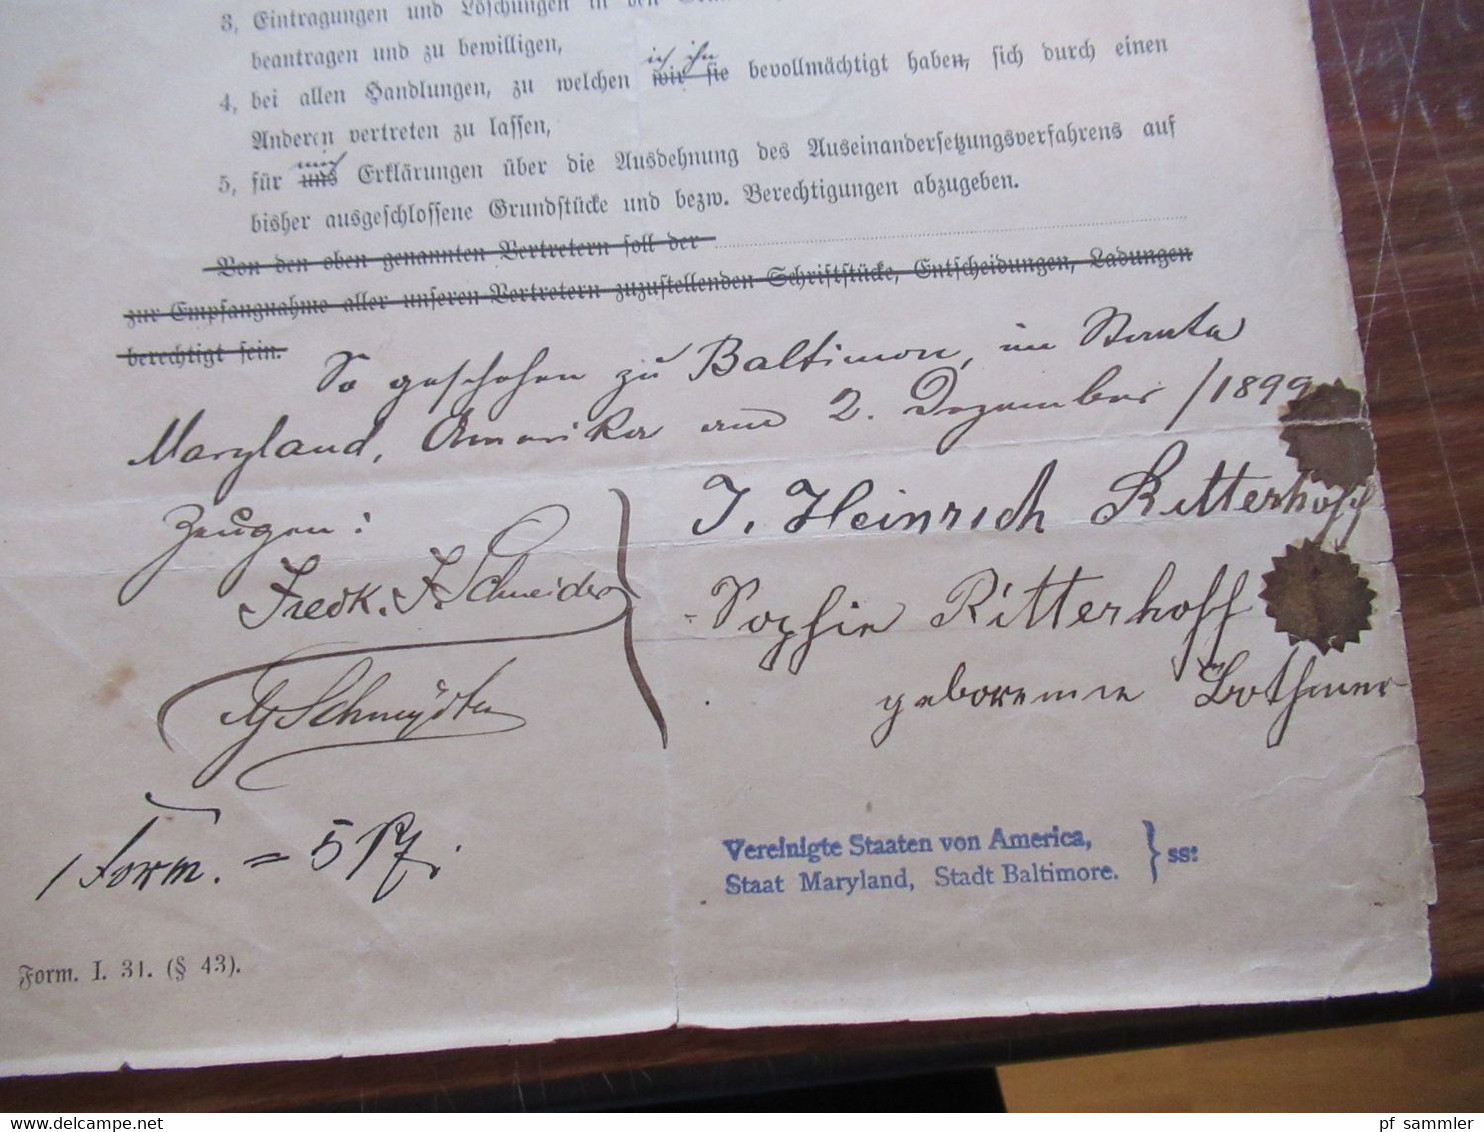 3, Eintragungen und Löschungen in den
beantragen und zu bewilligen,
ich ihn
4, bei allen Handlungen, zu welchen wir sie bevollmächtigt haben, sich durch einen
Anderen vertreten zu lassen,
mich
5, für uns Erklärungen über die Ausdehnung des Auseinandersetzungsverfahrens auf
bisher ausgeschlossene Grundstücke und bezw. Berechtigungen abzugeben.
Von den oben genannten Vertretern soll der
zur Empfangnahme aller unseren Vertretern zuzustellenden Schriftstücke, Entscheidungen, Ladungen
berechtigt sein.
So geschehen zu Baltimore, im Staate
Maryland, Amerika am 2. Dezember /1899
Zeugen:
Fredk. F. Schneider
J. Heinrich Ritterhoff
Sophie Ritterhoff
geborenne Bothmer
1 Form. = 5 Pf.
Vereinigte Staaten von America,
Staat Maryland, Stadt Baltimore. } ss:
Form. I. 31. (§ 43).
pf sammler